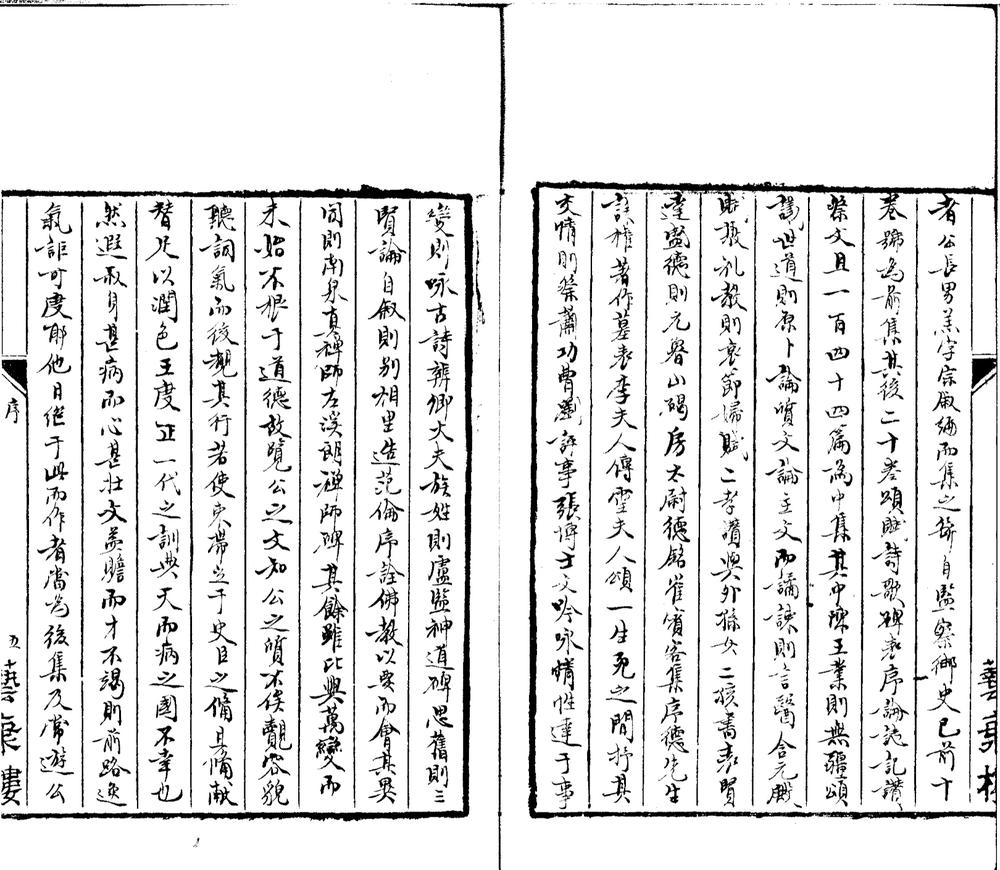 者公長男羔字宗緒編而集之斷自監察御史已前十
卷號為前集其後二十卷頌賦詩歌碑表序論誌記讚
祭文且一百四十四篇為中集其中陳王業則無疆頌
議世道則原卜論質文論主文而譎諫則言醫含元殿
賦敦礼教則哀節婦賦二孝讚與外孫女二孩書表賢
達盛德則元魯山碣房太尉德銘崔賓客集序德先生
誄權著作墓表李夫人傳靈夫人頌一生死之間抒其
交情則祭蕭功曹劉評事張博士文吟咏情性達于事
變則咏古詩辨卿大夫族姓則盧監神道碑思舊則三
賢論自叙則别相里造范倫序詮佛教以要而會其異
同則南泉真禪師左溪朗禅師碑其餘雖比興萬變而
未始不根于道德故覽公之文知公之質不俟覿容貌
聽詞氣而後觀其行若使東帶立于史臣之備且備献
替足以潤色王度正一代之訓典天而病之國不幸也
然遐叔身甚病而心甚壯文益贍而才不竭則前路逸
氣詎可度耶他日繼于此而作者當為後集及常遊公
序
五十
藝稾樓